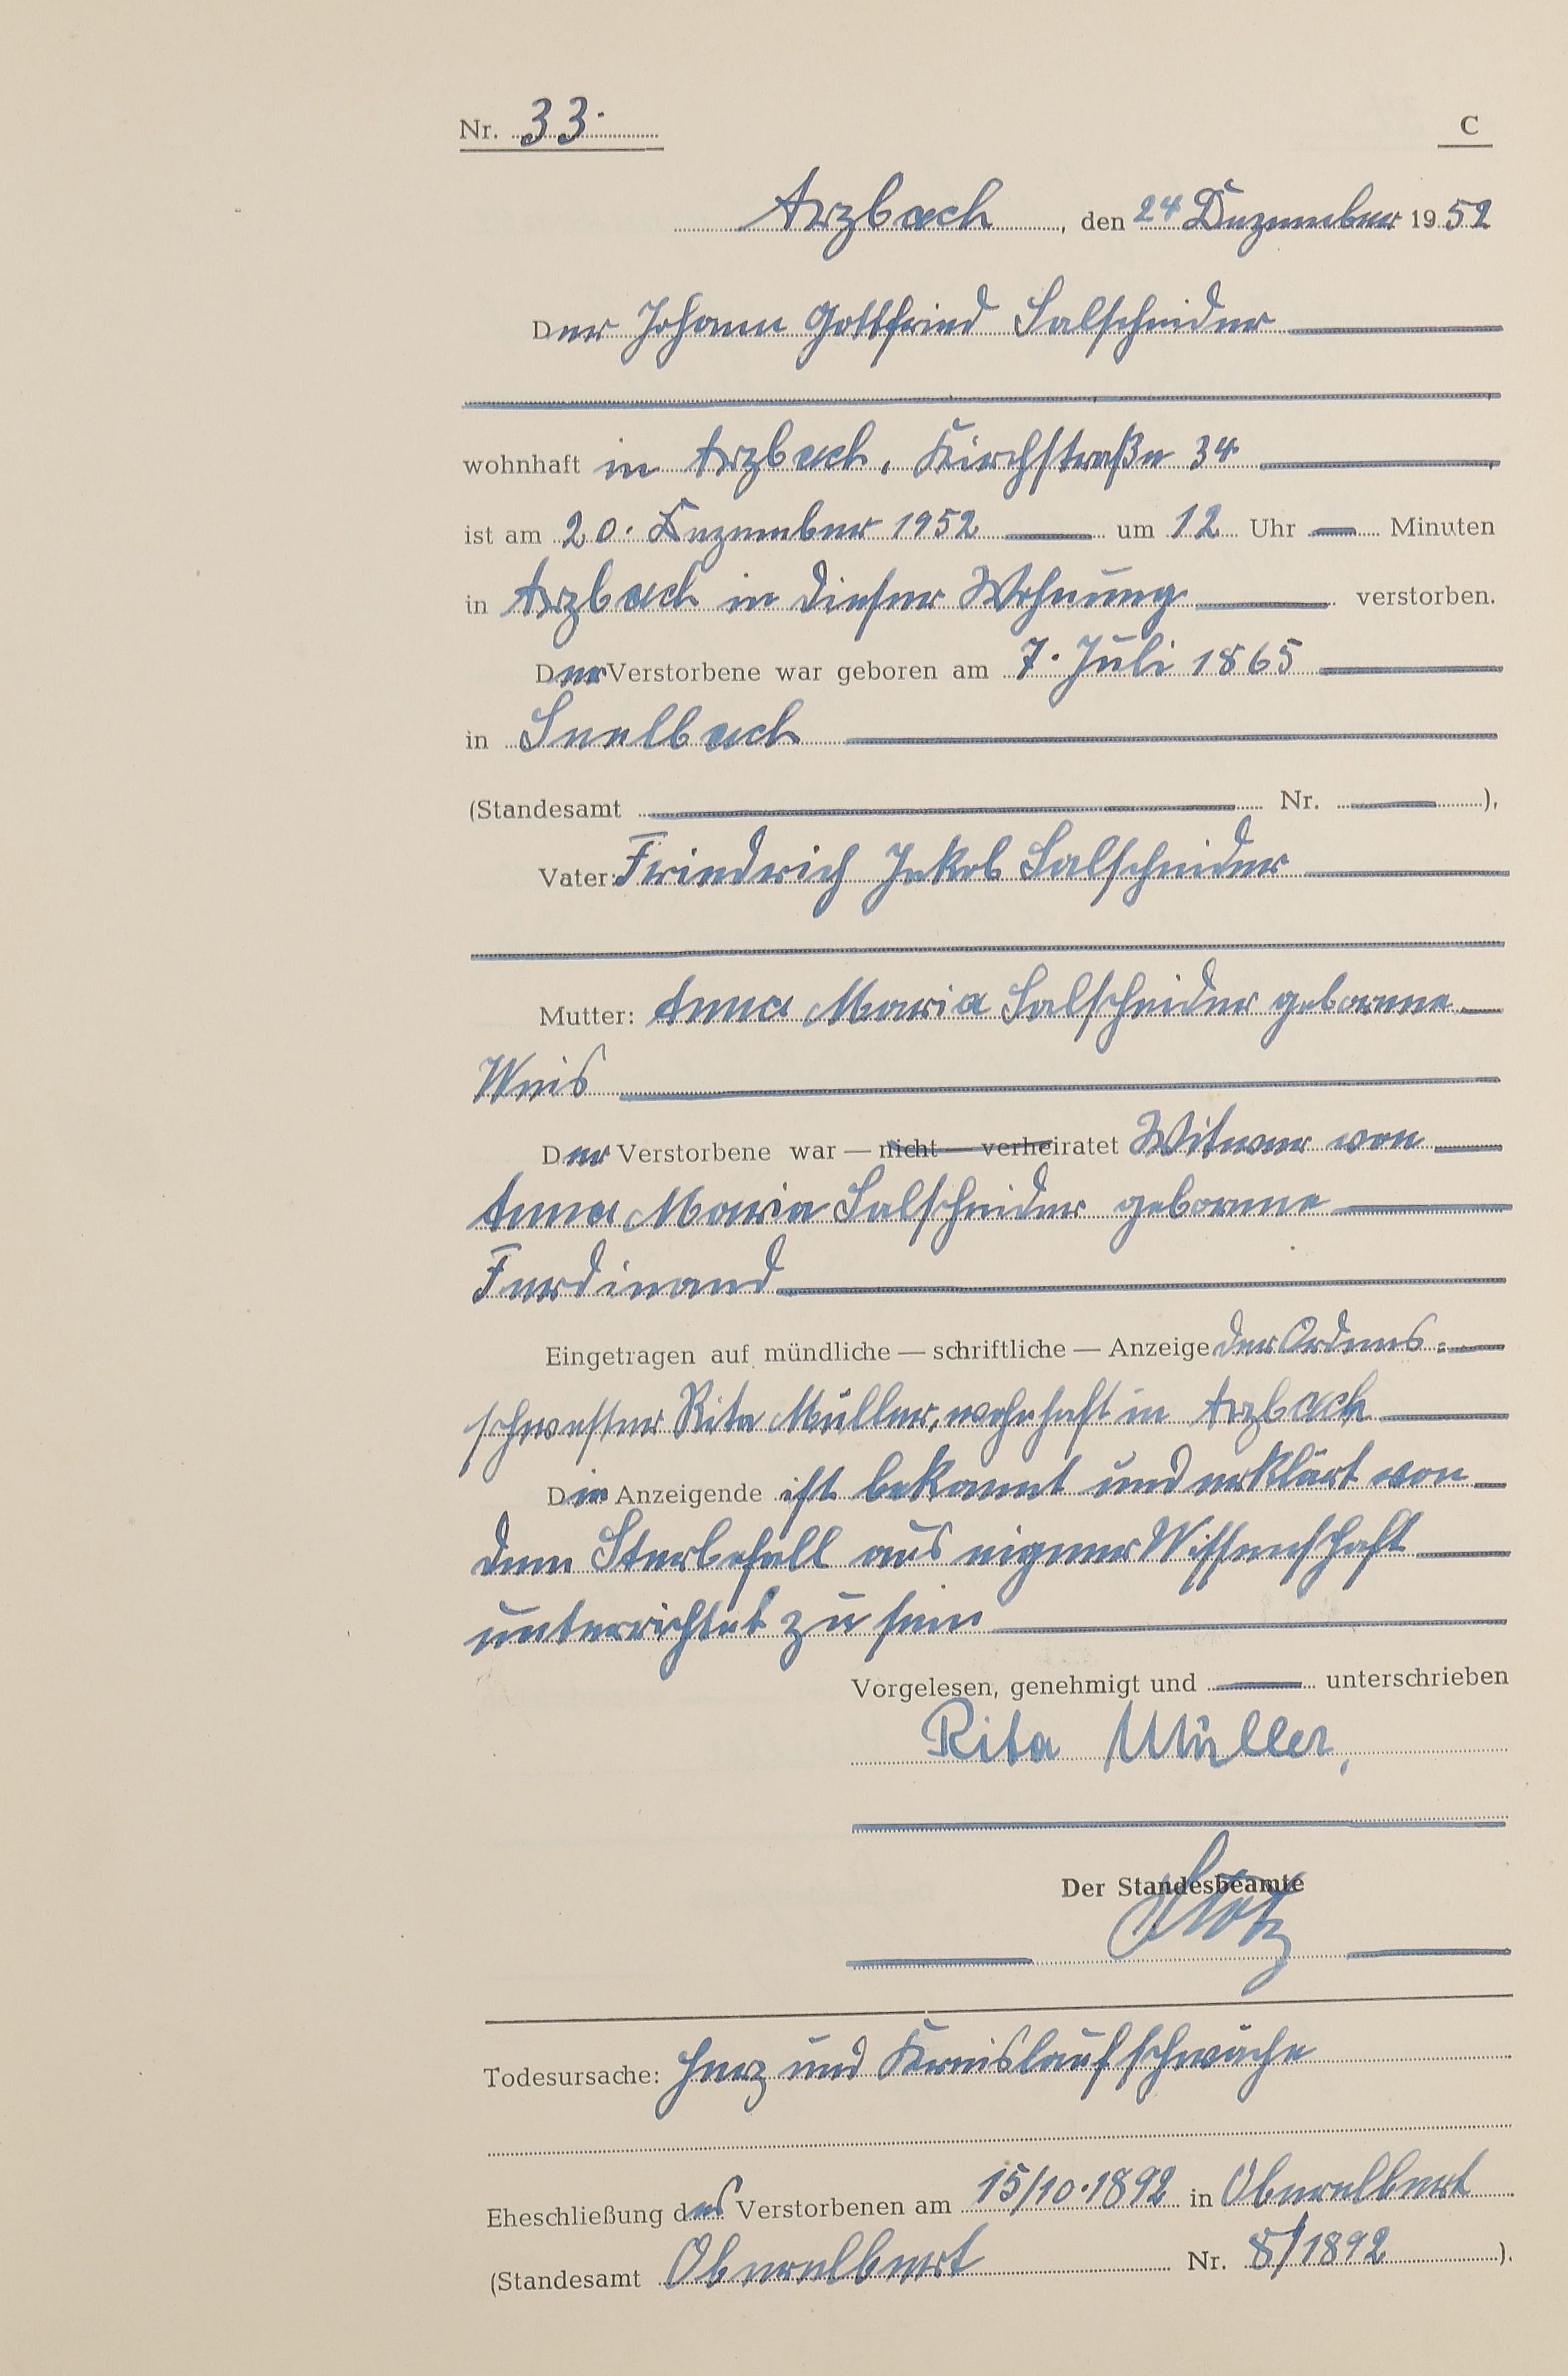 Nr. 33.
C
Arzbach, den 24 Dezember 1952
Der Johann Gottfried Salscheider
wohnhaft in Arzbach, Kirchstraße 34
ist am 20. Dezember 1952 um 12 Uhr Minuten
in Arzbach in dieser Wohnung verstorben.
Der Verstorbene war geboren am 7. Juli 1865
in Seelbach
(Standesamt Nr. ),
Vater: Friedrich Jakob Salscheider
Mutter: Anna Maria Salscheider geborene
Weis
Der Verstorbene war — nicht — verheiratet Witwer von
Anna Maria Salscheider geborene
Ferdinand
Eingetragen auf mündliche — schriftliche — Anzeige der Ordens=
schwester Rita Müller, wohnhaft in Arzbach
Die Anzeigende ist bekannt und erklärt von
dem Sterbefall aus eigener Wissenschaft
unterrichtet zu sein
Vorgelesen, genehmigt und unterschrieben
Rita Müller,
Der Standesbeamte
Todesursache: Herz und Kreislaufschwäche
Eheschließung des Verstorbenen am 15/10.1892 in Oberelbert
(Standesamt Oberelbert Nr. 8/1892 ).